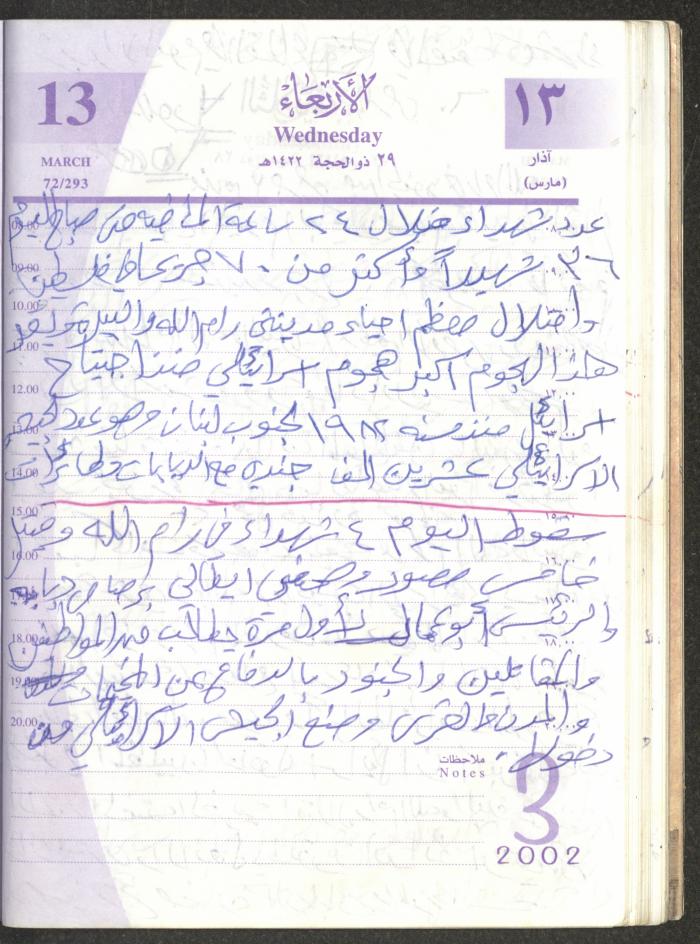 13
MARCH
72/293
الأربعاء
Wednesday
٢٩ ذو الحجة ١٤٢٢هـ
١٣
آذار
(مارس)
08.00
عدد شهداء خلال ٢٤ ساعة الماضية من صباح اليوم
09.00
٣٦ شهيداً وأكثر من ٧٠ جريحا في فلسطين
10.00
واحتلال معظم احياء مدينتي رام الله والبيرة
11.00
هذا الهجوم اكبر هجوم اسرائيلي منذ اجتياح
12.00
اسرائيل منذ سنة ١٩٨٢ لجنوب لبنان وهو عدد الجيش
13.00
الاسرائيلي عشرين الف جندي مع الدبابات وطائرات
14.00
15.00
سقوط اليوم ٤ شهداء في رام الله
16.00
خامس مصور وصحفي ايطالي برصاص دبابه
17.00
والرئيس أبو عمار لأول مرة يطالب من المواطنين
18.00
والمقاتلين والجنود بالدفاع عن المخيمات
19.00
والمدن والقرى ومنع الجيش الاسرائيلي من
20.00
دخولها.
ملاحظات
Notes
3
2002